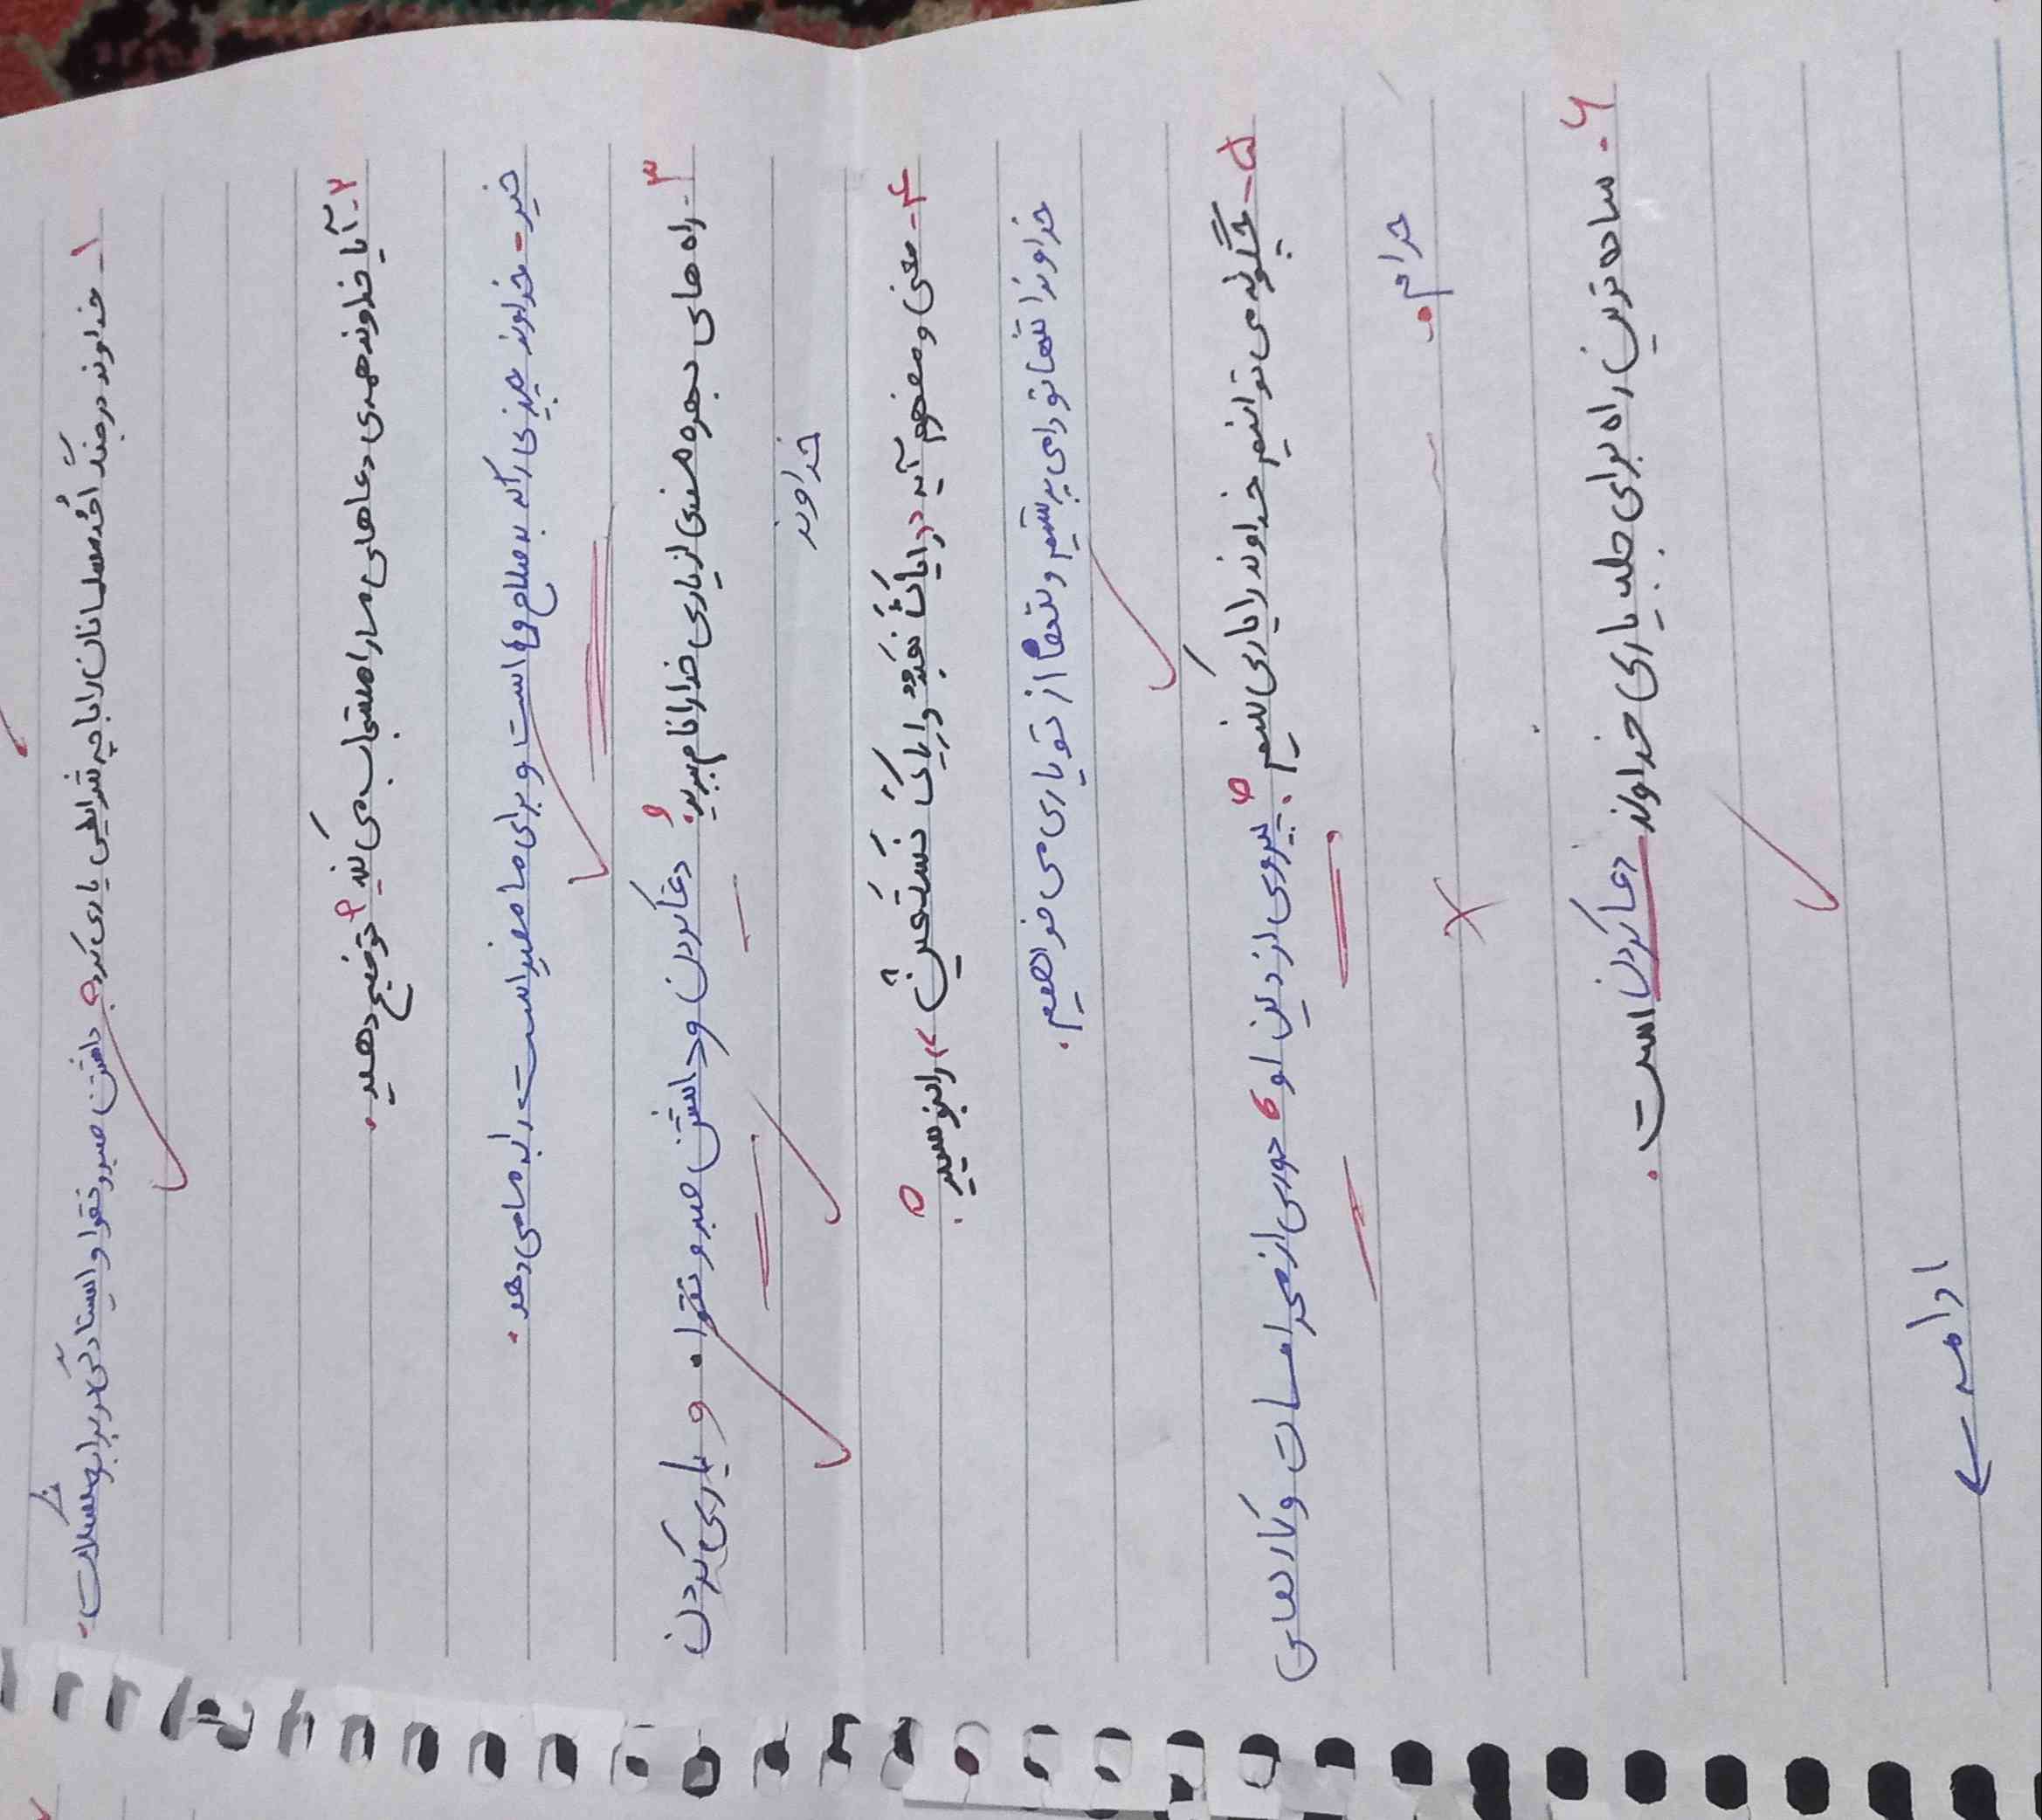 ۱- خداوند در جنگ اُحُد مسلمانان را با چه شرایطی یاری کرد؟ داشتن صبر و تقوا و ایستادگی در برابر مشکلات.
۲- آیا خداوند همه‌ی دعاهای ما را مستجاب می‌کند؟ توضیح دهید.
خیر - خداوند چیزی را که به صلاح ما است و برای ما مفید است را به ما می دهد.
۳- راه های بهره مندی از یاری خدا را نام ببرید؟ دعا کردن و داشتن صبر و تقوا. و یاری کردن
خداوند
۴- معنی و مفهوم آیه «ایاکَ نَعبُدُ و ایاکَ نَستَعین» را بنویسید؟
خداوندا تنها تو را می پرستیم و تنها از تو یاری می خواهیم.
۵- چگونه می توانیم خداوند را یاری کنیم؟ پیروی از دین او، دوری از محرامات و کارهای
حرام.
۶- ساده ترین راه برای جلب یاری خداوند دعا کردن است.
ادامه ←